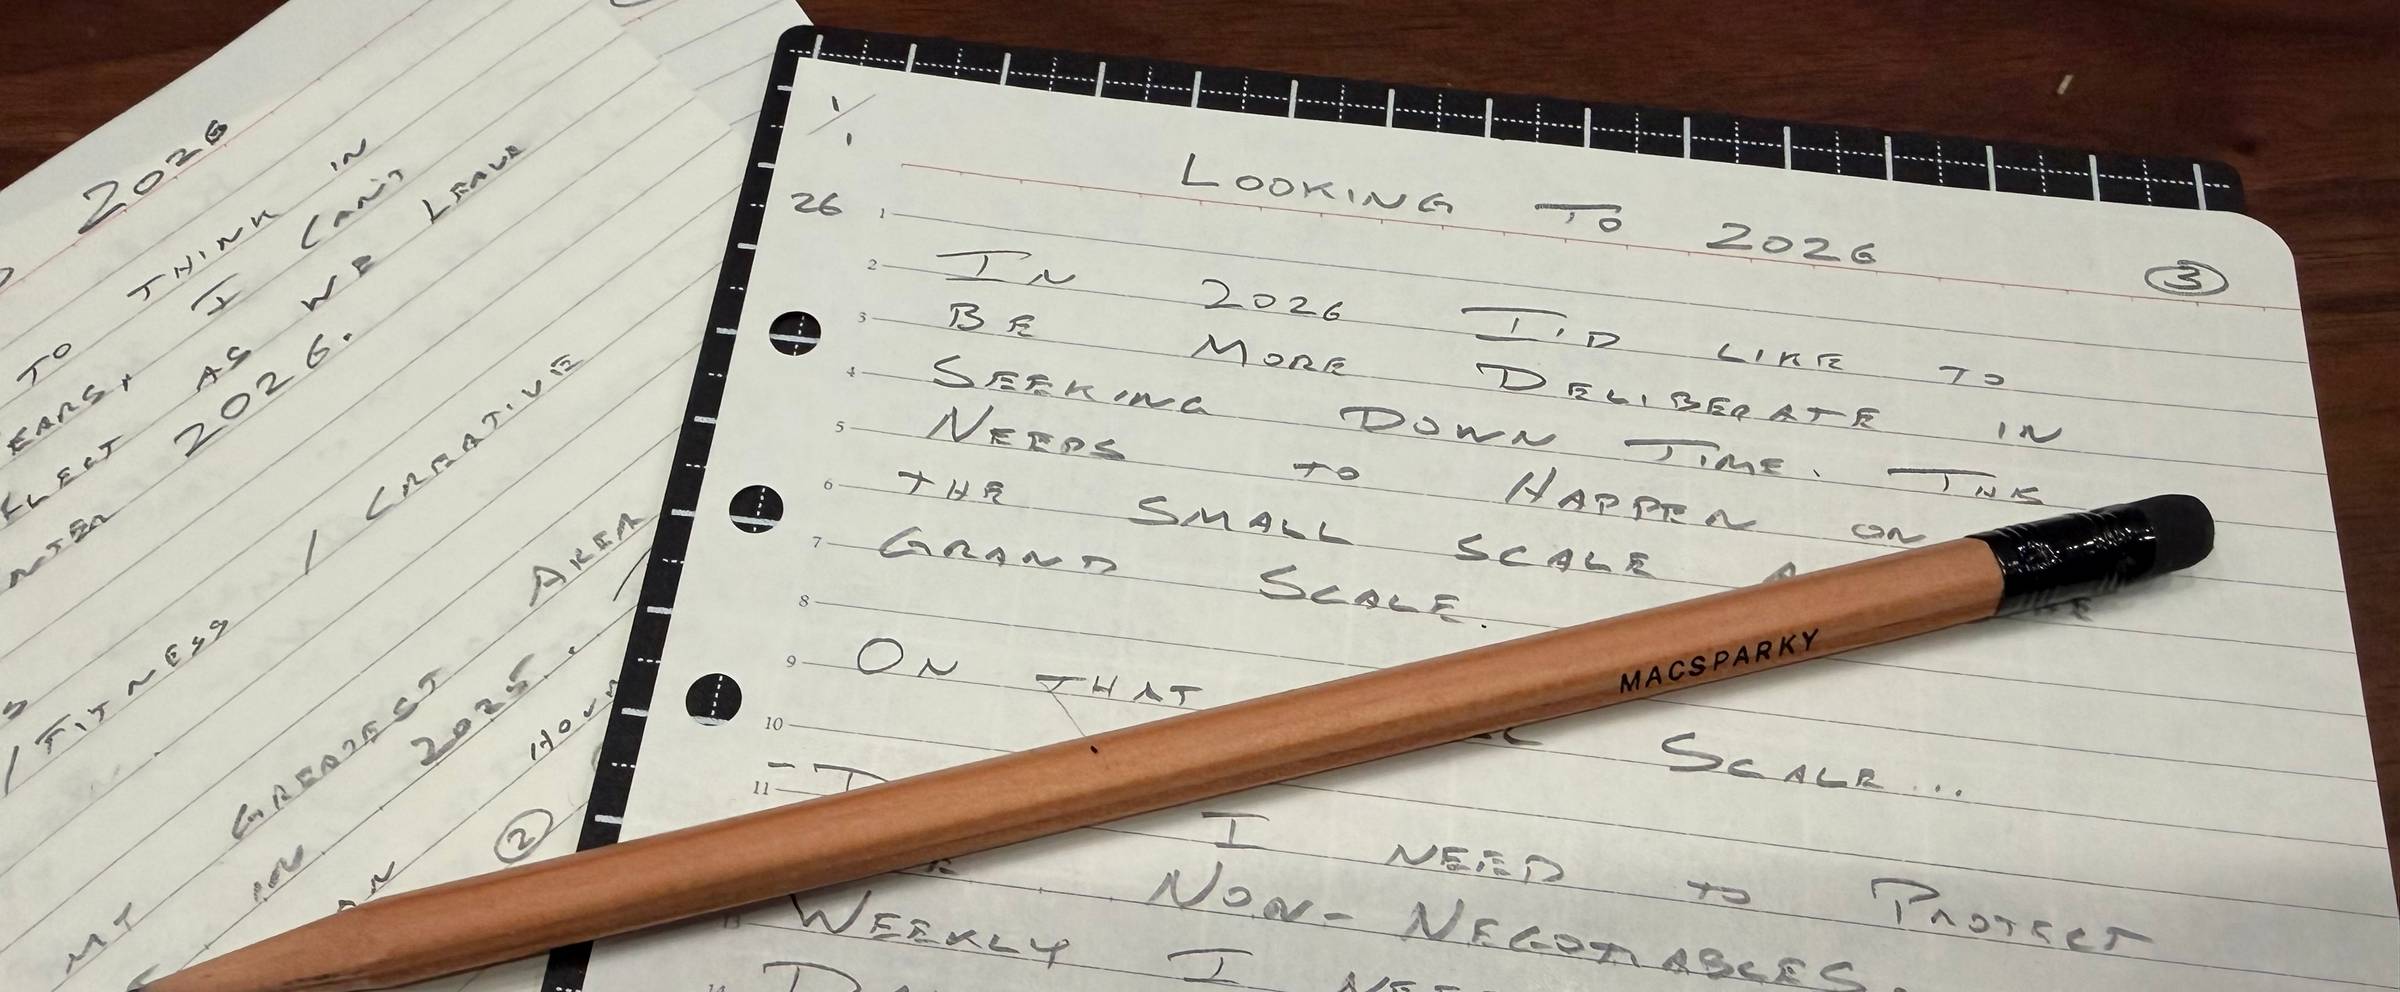 2026
TO THINK IN
EARS, I CAN'T
FLECT AS WE LEAVE
NTER 2026.
/ FITNESS / CREATIVE
GREATEST AREA
IN 2025.
HOUR
MT
2
1/1
26
LOOKING TO 2026
3
1
2
IN 2026 I'D LIKE TO
3
BE MORE DELIBERATE IN
4
SEEKING DOWN TIME. THIS
5
NEEDS TO HAPPEN ON
6
THE SMALL SCALE
7
GRAND SCALE.
8
9
ON THAT SCALE...
10
11
I NEED TO PROTECT
NON-NEGOTIABLES.
13
WEEKLY I NEED
14
MACSPARKY